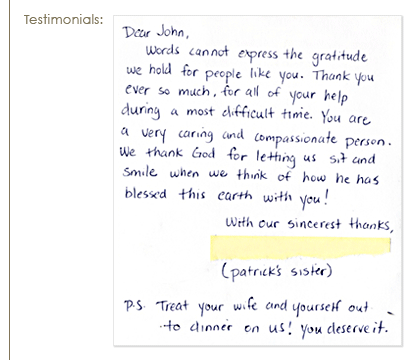 Testimonials:
Dear John,
Words cannot express the gratitude
we hold for people like you. Thank you
ever so much, for all of your help
during a most difficult time. You are
a very caring and compassionate person.
We thank God for letting us sit and
smile when we think of how he has
blessed this earth with you!
With our sincerest thanks,
(patrick's sister)
P.S. Treat your wife and yourself out
to dinner on us! You deserve it.